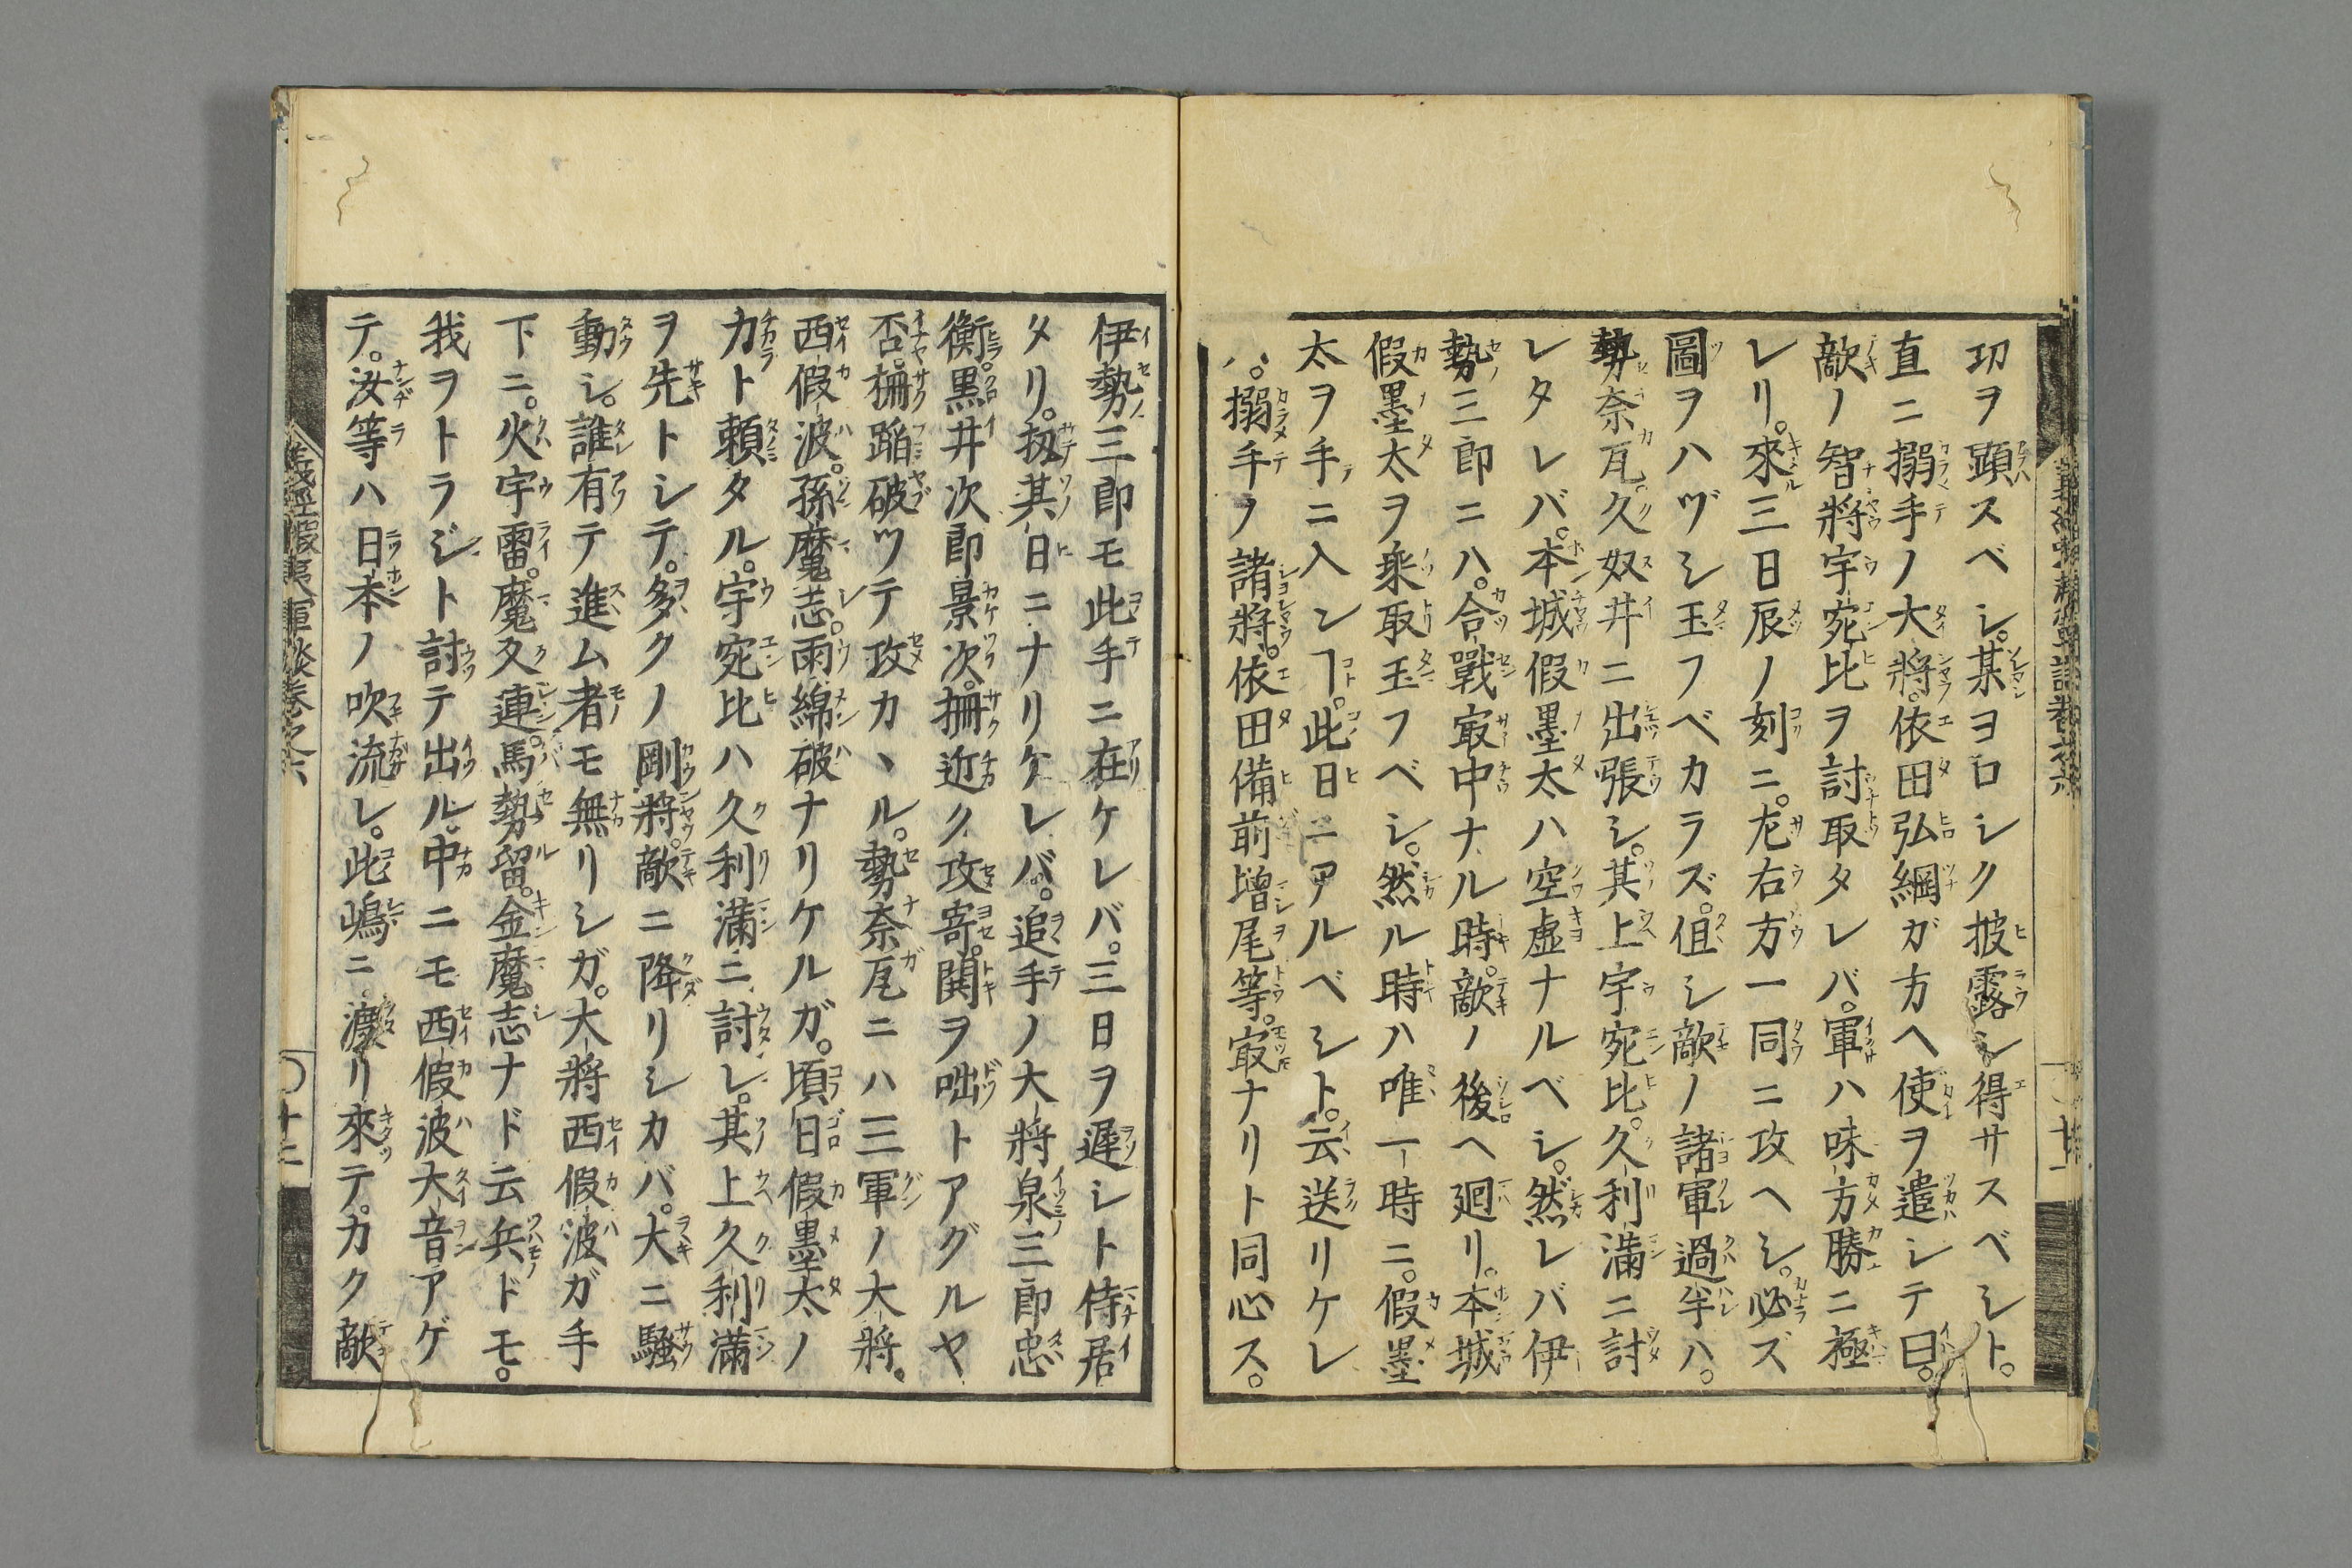 功ヲ顕スベシ。某ヨロシク披露シ得サスベシト。
直ニ搦手ノ大将。依田弘綱ガ方ヘ使ヲ遣シテ曰。
敵ノ智將宇宛比ヲ討取タレバ。軍ハ味方勝ニ極
レリ。來三日辰ノ刻ニ。左右方一同ニ攻ヘシ。必ズ
圖ヲハヅシ玉フベカラズ。但シ敵ノ諸軍過半ハ。
勢奈瓦。久奴井ニ出張シ。其上宇宛比。久利滿ニ討
レタレバ。本城假墨太ハ空虚ナルベシ。然レバ伊
勢三郎ニハ。合戰㝡中ナル時。敵ノ後ヘ廻リ。本城
假墨太ヲ乗取玉フベシ。然ル時ハ唯一時ニ。假墨
太ヲ手ニ入ンヿ。此日ニアルベシト。云送リケレ
バ。搦手ノ諸將。依田備前増尾等。㝡ナリト同心ス。
伊勢三郎モ此手ニ在ケレバ。三日ヲ遲シト待居
タリ。扨其日ニナリケレバ。追手ノ大將泉三郎忠
衡。黒井次郎景次。柵近ク攻寄。鬨ヲ咄トアグルヤ
否。柵蹈破ツテ攻カヽル。勢奈瓦ニハ三軍ノ大將。
西假波。孫魔志。雨綿破ナリケルガ。頃日假墨太ノ
力ト頼タル。宇宛比ハ久利滿ニ討レ。其上久利滿
ヲ先トシテ。多クノ剛將。敵ニ降リシカバ。大ニ騒
動シ。誰有テ進ム者モ無リシガ。大將西假波ガ手
下ニ。火宇雷。魔久連。馬勢留。金魔志ナド云兵ドモ。
我ヲトラジト討テ出ル。中ニモ西假波大音アゲ
テ。汝等ハ日本ノ吹流レ。此嶋ニ渡リ來テ。カク敵
義經蝦夷軍談卷之六
十二